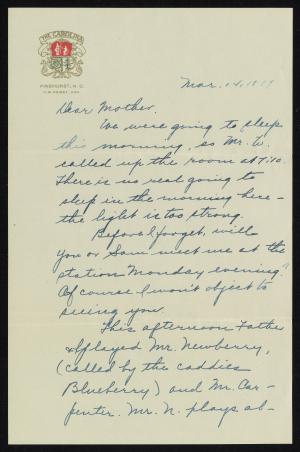 THE CAROLINA
PINEHURST, N. C.
Mar. 14, 19
Dear Mother.
We were going to sleep
this morning, so Mr. W.
called up the room at 7:10.
There is no real going to
sleep in the morning here –
the light is too strong.
Before I forget, will
you or Sam meet me at the
station Monday evening?
Of course I won't object to
seeing you.
This afternoon Father
& I played Mr. Newberry,
(called by the caddies
Blueberry) and Mr. Car-
penter. Mr. N. plays ab-